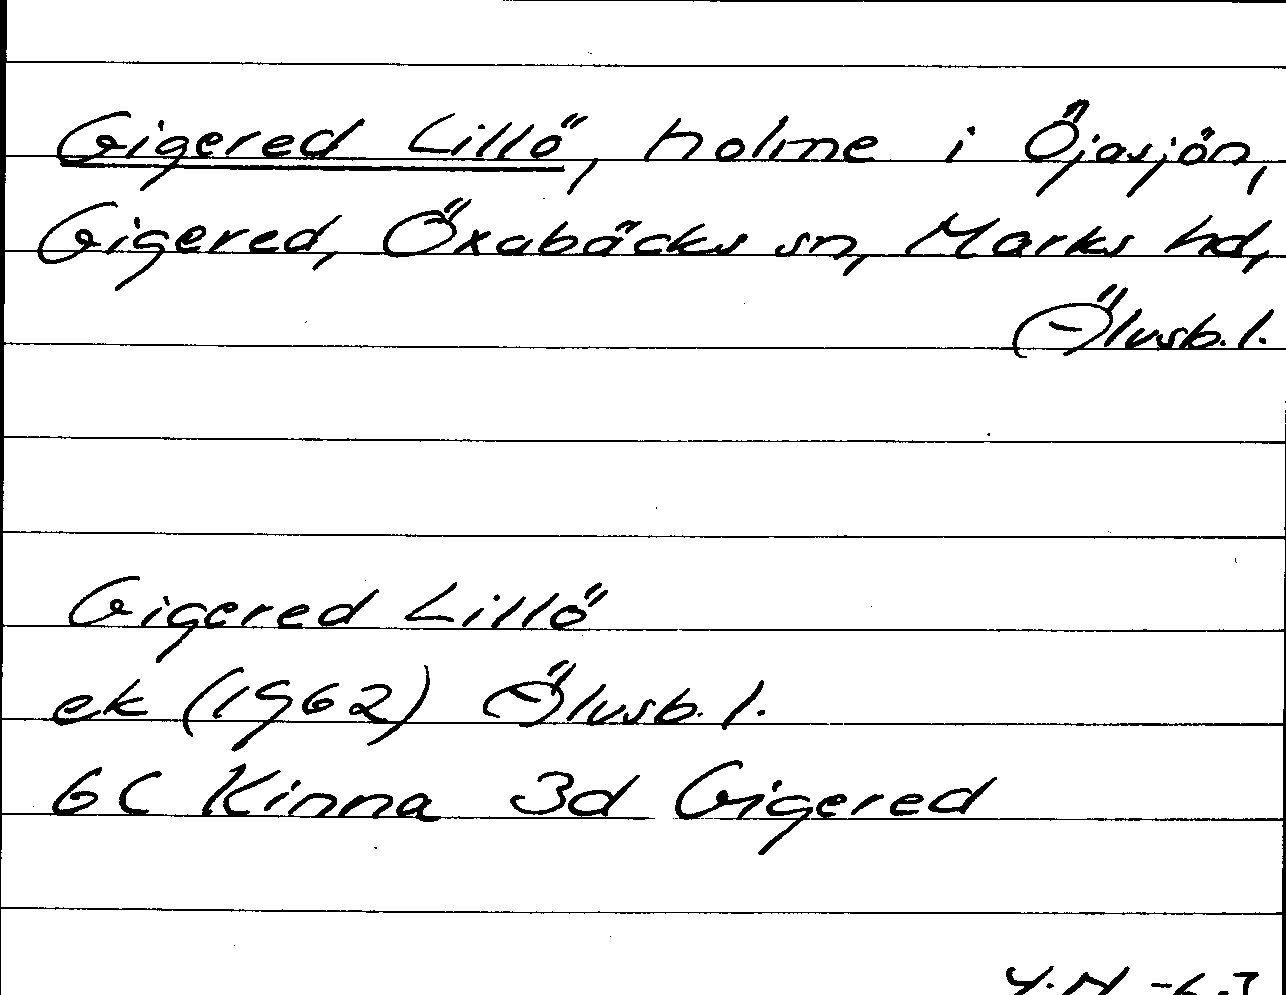 Gigered Lillö, holme i Öjasjön,
Gigered, Öxabäcks sn, Marks hd,
Älvsb. l.
Gigered Lillö
ek (1962) Älvsb. l.
6C Kinna 3d Gigered